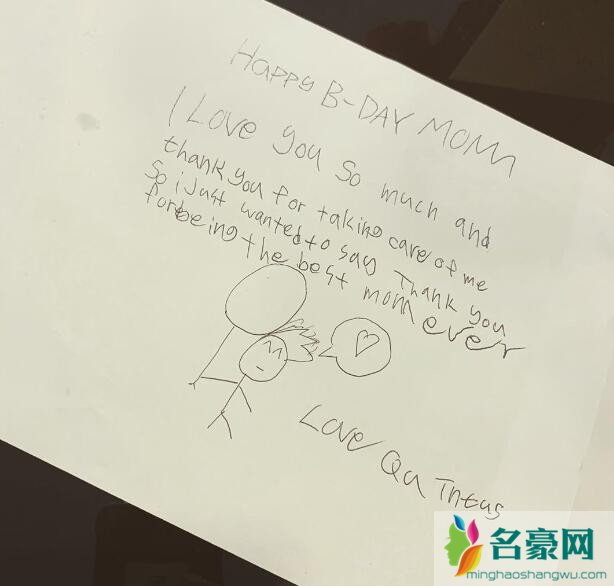 HAPPY B-DAY MOM
I Love you so much and
thank you for taking care of me
So i Just wanted to say Thank you
for being the best mom ever
Love Qu Tntus
名豪网
minghaoshangwu.com